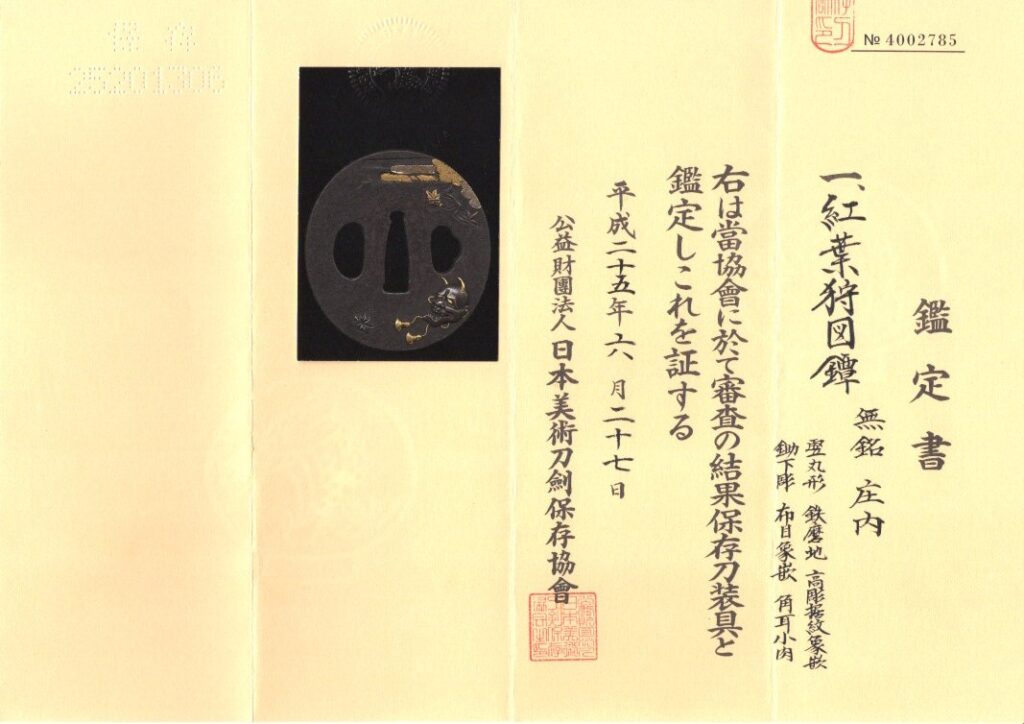 № 4002785
鑑定書
一、紅葉狩図鐔
無銘 庄内
竪丸形 鉄磨地 高彫据紋象嵌
鋤下彫 布目象嵌 角耳小肉
右は當協會に於て審査の結果保存刀装具と
鑑定しこれを証する
平成二十五年六月二十七日
公益財團法人 日本美術刀劍保存協會
保存
25201306